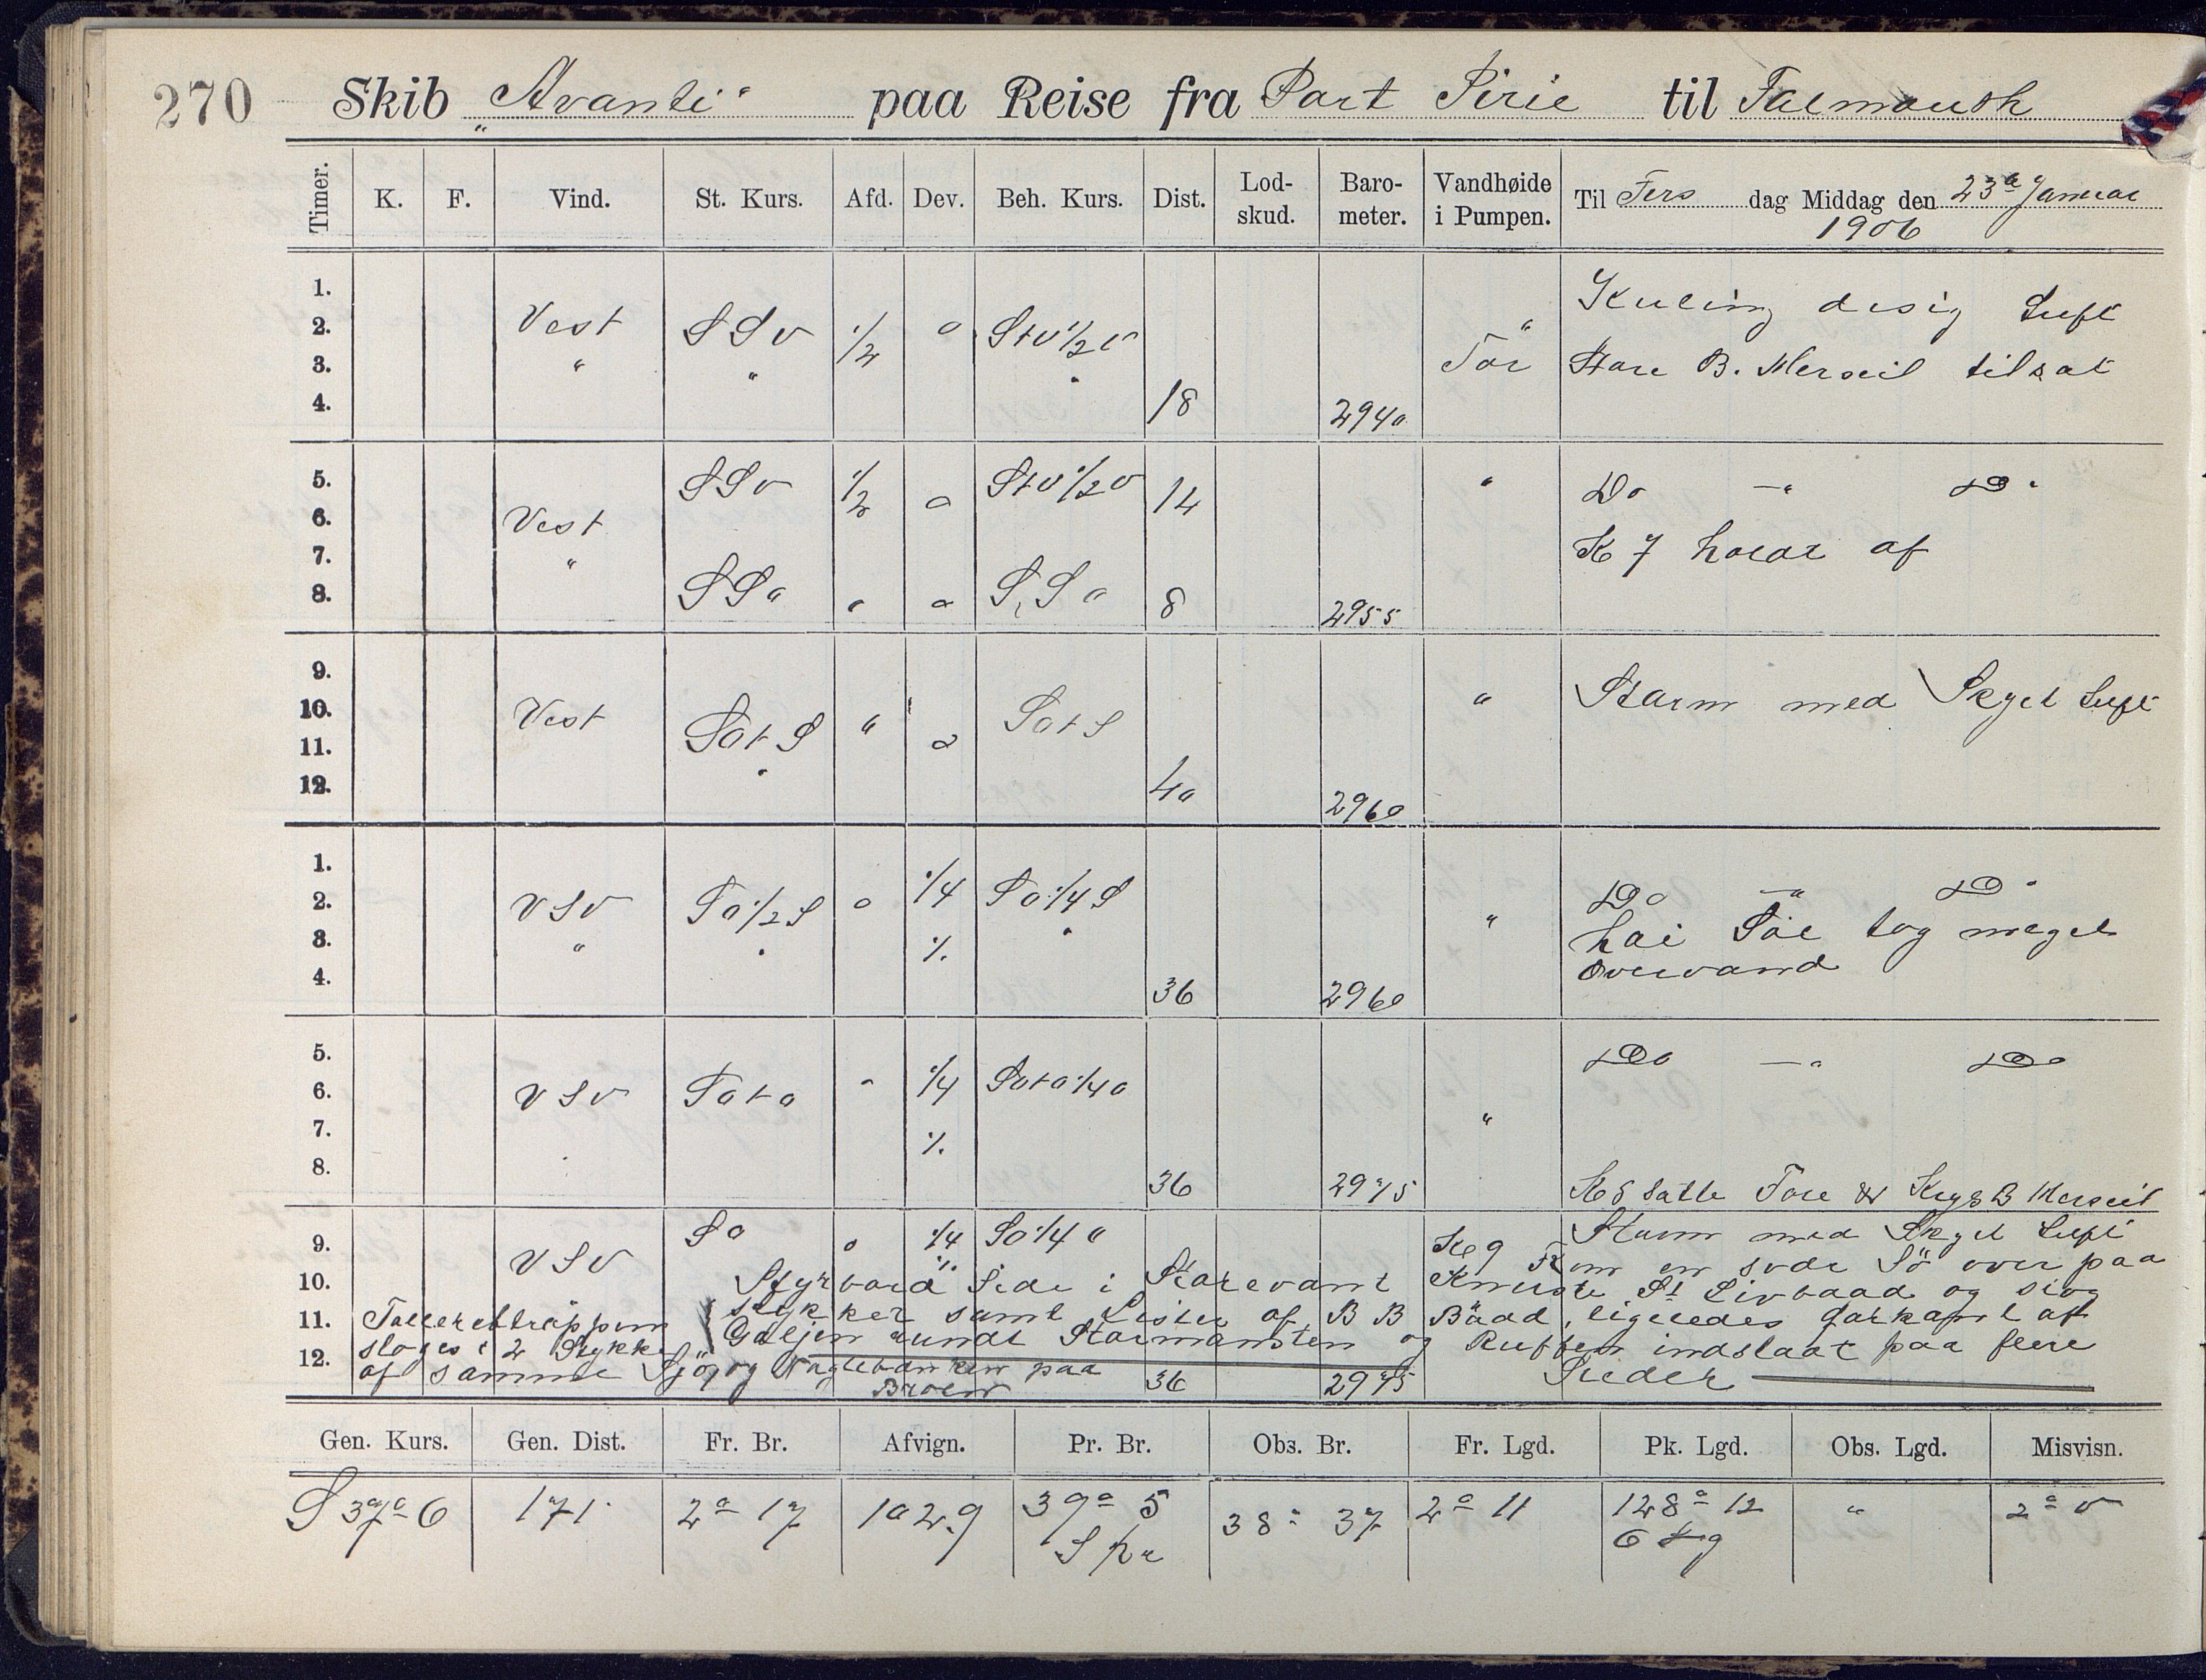 270 Skib „Avanti" paa Reise fra Port Pirie til Falmouth
Timer. K. F. Vind. St. Kurs. Afd. Dev. Beh. Kurs. Dist. Lod-skud. Baro-meter. Vandhøide i Pumpen. Til Tirs dag Middag den 23de Januar
1906
1.
2. Vest SSV 1/2 0 StV1/2V " Kuling disig Luft
3. " " " Tör Store B. Merseil tilsat
4. 18 2940
5. SSV 1/2 0 StV1/2V 14 " Do —"— Do
6. Vest
7. " Kl 7 holdt af
8. SSO " 0 SSO 8 2955
9.
10. Vest SOtS " 0 SOtS " Storm med Skyet Luft
11. "
12. 40 2960
1.
2. VSV SO1/2S 0 1/4 SO1/4S Do —"— Do
3. " " % " " høi Sö tog meget
4. 36 2960 overvand
5. Do —"— Do
6. VSV SOtO " 1/4 SOtO1/4O
7. % "
8. 36 2975 Kl 8 satte Fore & Kryds B Merseil
9. VSV SO 0 1/4 SO1/4O Storm med Skyet Luft
Kl 9 Kom en svær Sö over paa
10. Styrbord Side i Storevant Knuste St Livbaad og slog
11. stykker samt Lister af B B Baad, ligeledes
Galjen rundt Stormasten og Ruffen indslaat paa flere
Steder
12. sloges i 2 Stykker
af samme Sjö, og Naglebanken paa
Broen 36 2975
Gen. Kurs. Gen. Dist. Fr. Br. Afvign. Pr. Br. Obs. Br. Fr. Lgd. Pk. Lgd. Obs. Lgd. Misvisn.
S 37° O 171 2° 17 102.9 39° 5 38° 37 2° 11 128° 12 " 2° V